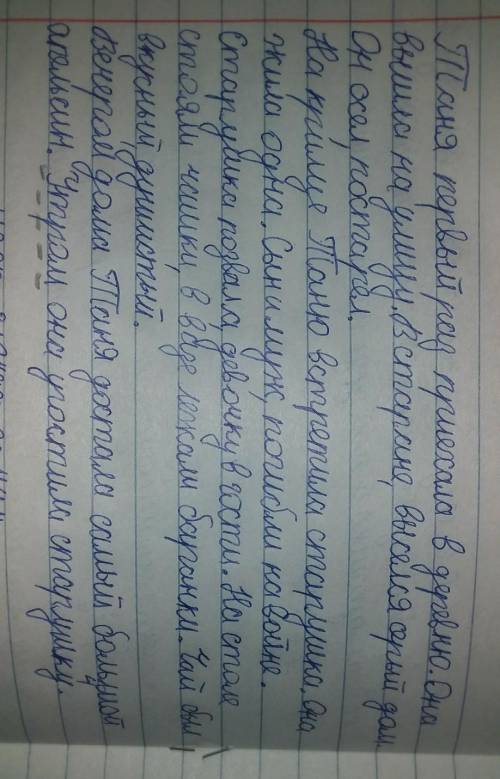 Таня первый раз приехала в деревню. Она
вышла на улицу. В старине, высался серый дом.
Он осел, постарел.
На крыльце Таню встретила старушка. Она
жила одна. Сын и муж, погибли на войне.
Старушка позвала, девочку в гости. На столе
стояли чашки, в вазе лежали баранки. Чай был
вкусный, душистый.
Вечером дома Таня достала самый большой
апельсин. Утром она угостила старушку.